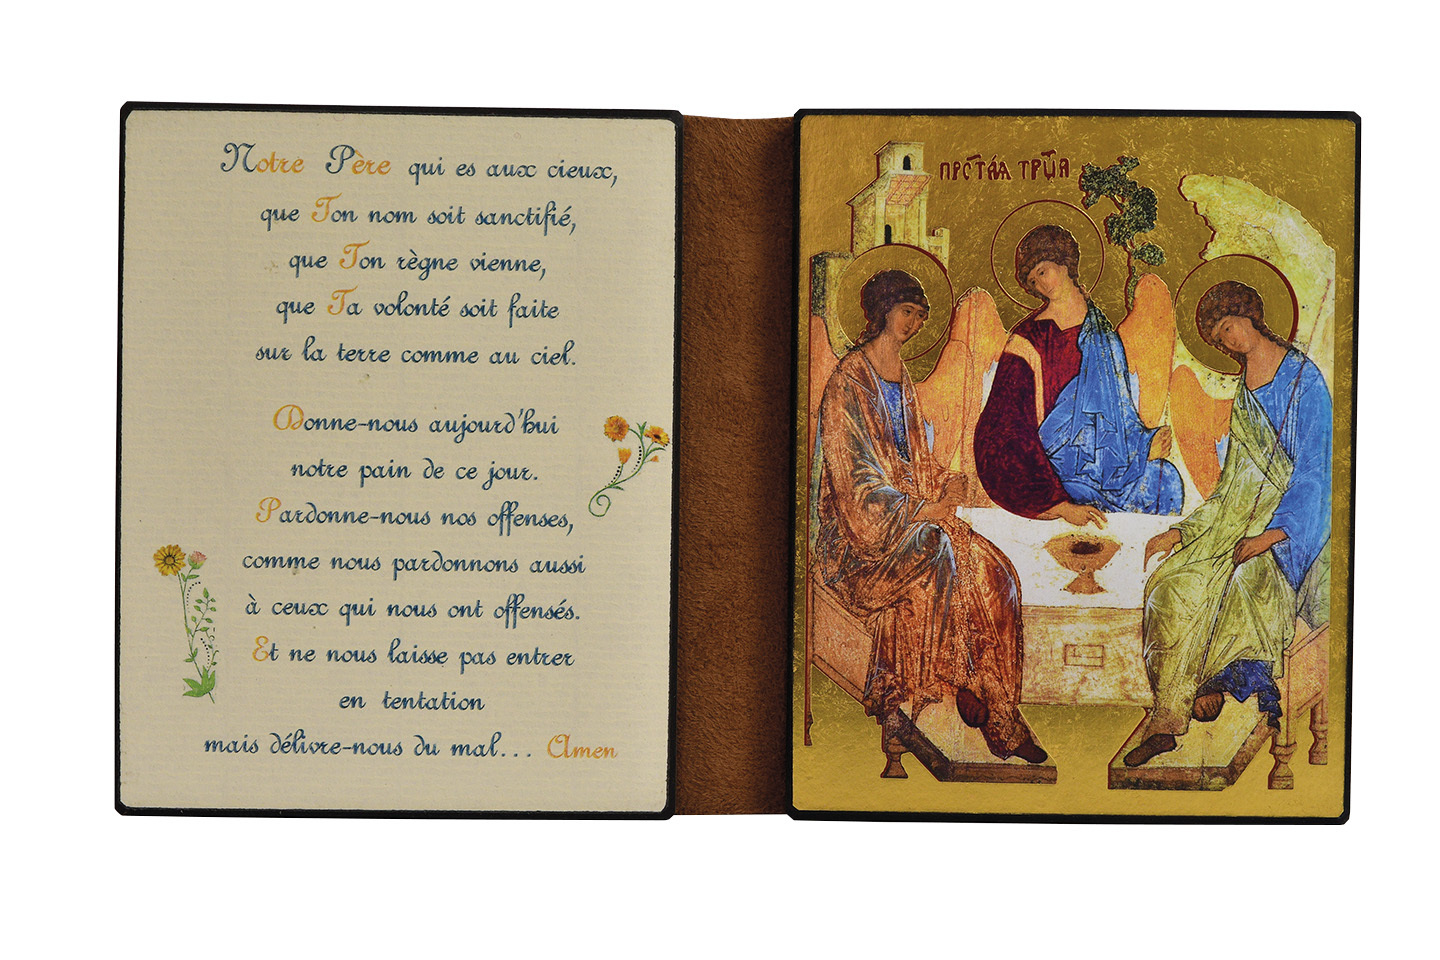 Notre Père qui es aux cieux,
que Ton nom soit sanctifié,
que Ton règne vienne,
que Ta volonté soit faite
sur la terre comme au ciel.
Donne-nous aujourd'hui
notre pain de ce jour.
Pardonne-nous nos offenses,
comme nous pardonnons aussi
à ceux qui nous ont offensés.
Et ne nous laisse pas entrer
en tentation
mais délivre-nous du mal... Amen
ПРСТАѦ ТРЦА